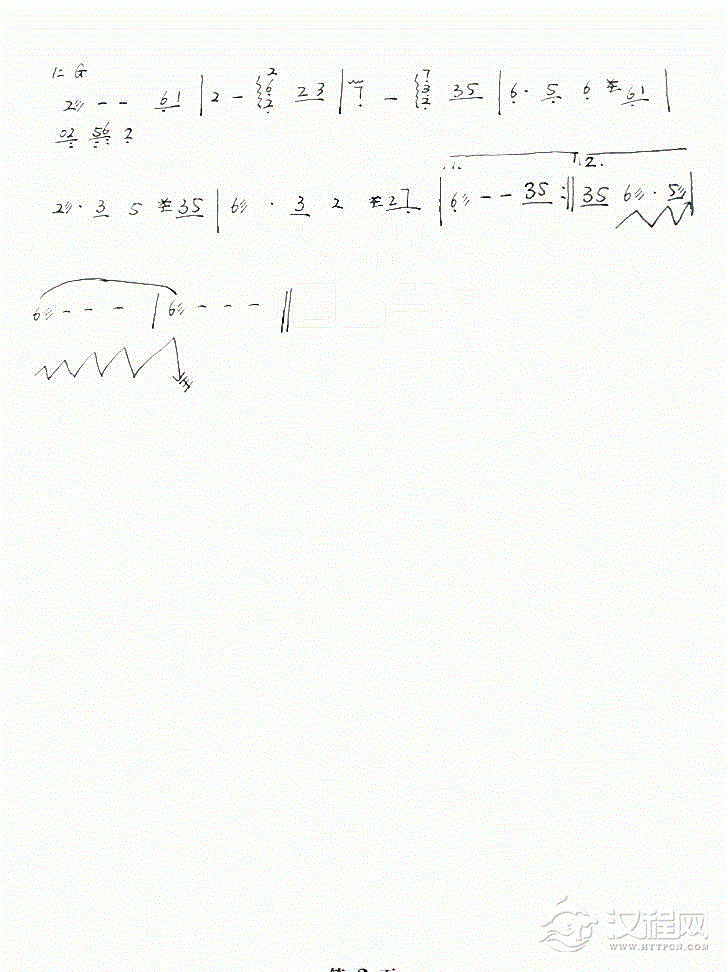 1= G
2 - - 6 1 | 2 - 2 6 2 2 3 | 7 - 7 3 2 3 5 | 6 · 5 6 6 1 |
0 2 5 6 2
1. 2.
2 · 3 5 3 5 | 6 · 3 2 2 7 | 6 - - 3 5 :|| 3 5 6 · 5 |
6 - - - | 6 - - - ||
汉程网
WWW.HTTPCN.COM